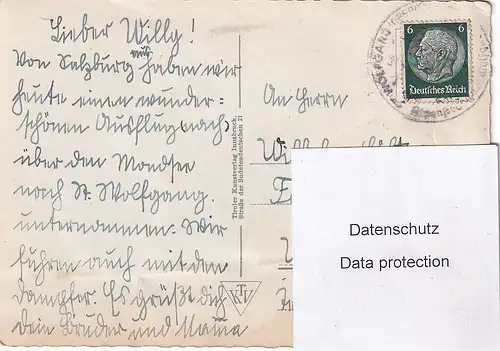 Lieber Willy!
Von Salzburg aus haben wir
heute einen wunder=
schönen Ausflug nach
über den Mondsee
nach St. Wolfgang.
unternammen. Wir
fuhren auch mit den
Dampfer. Es grüßt dich
Dein Bruder und Mama
Tiroler Kunstverlag Innsbruck,
Straße der Sudetendeutschen 21
TKV
An Herrn
6 6
Deutsches Reich
WOLFGANG
Datenschutz
Data protection